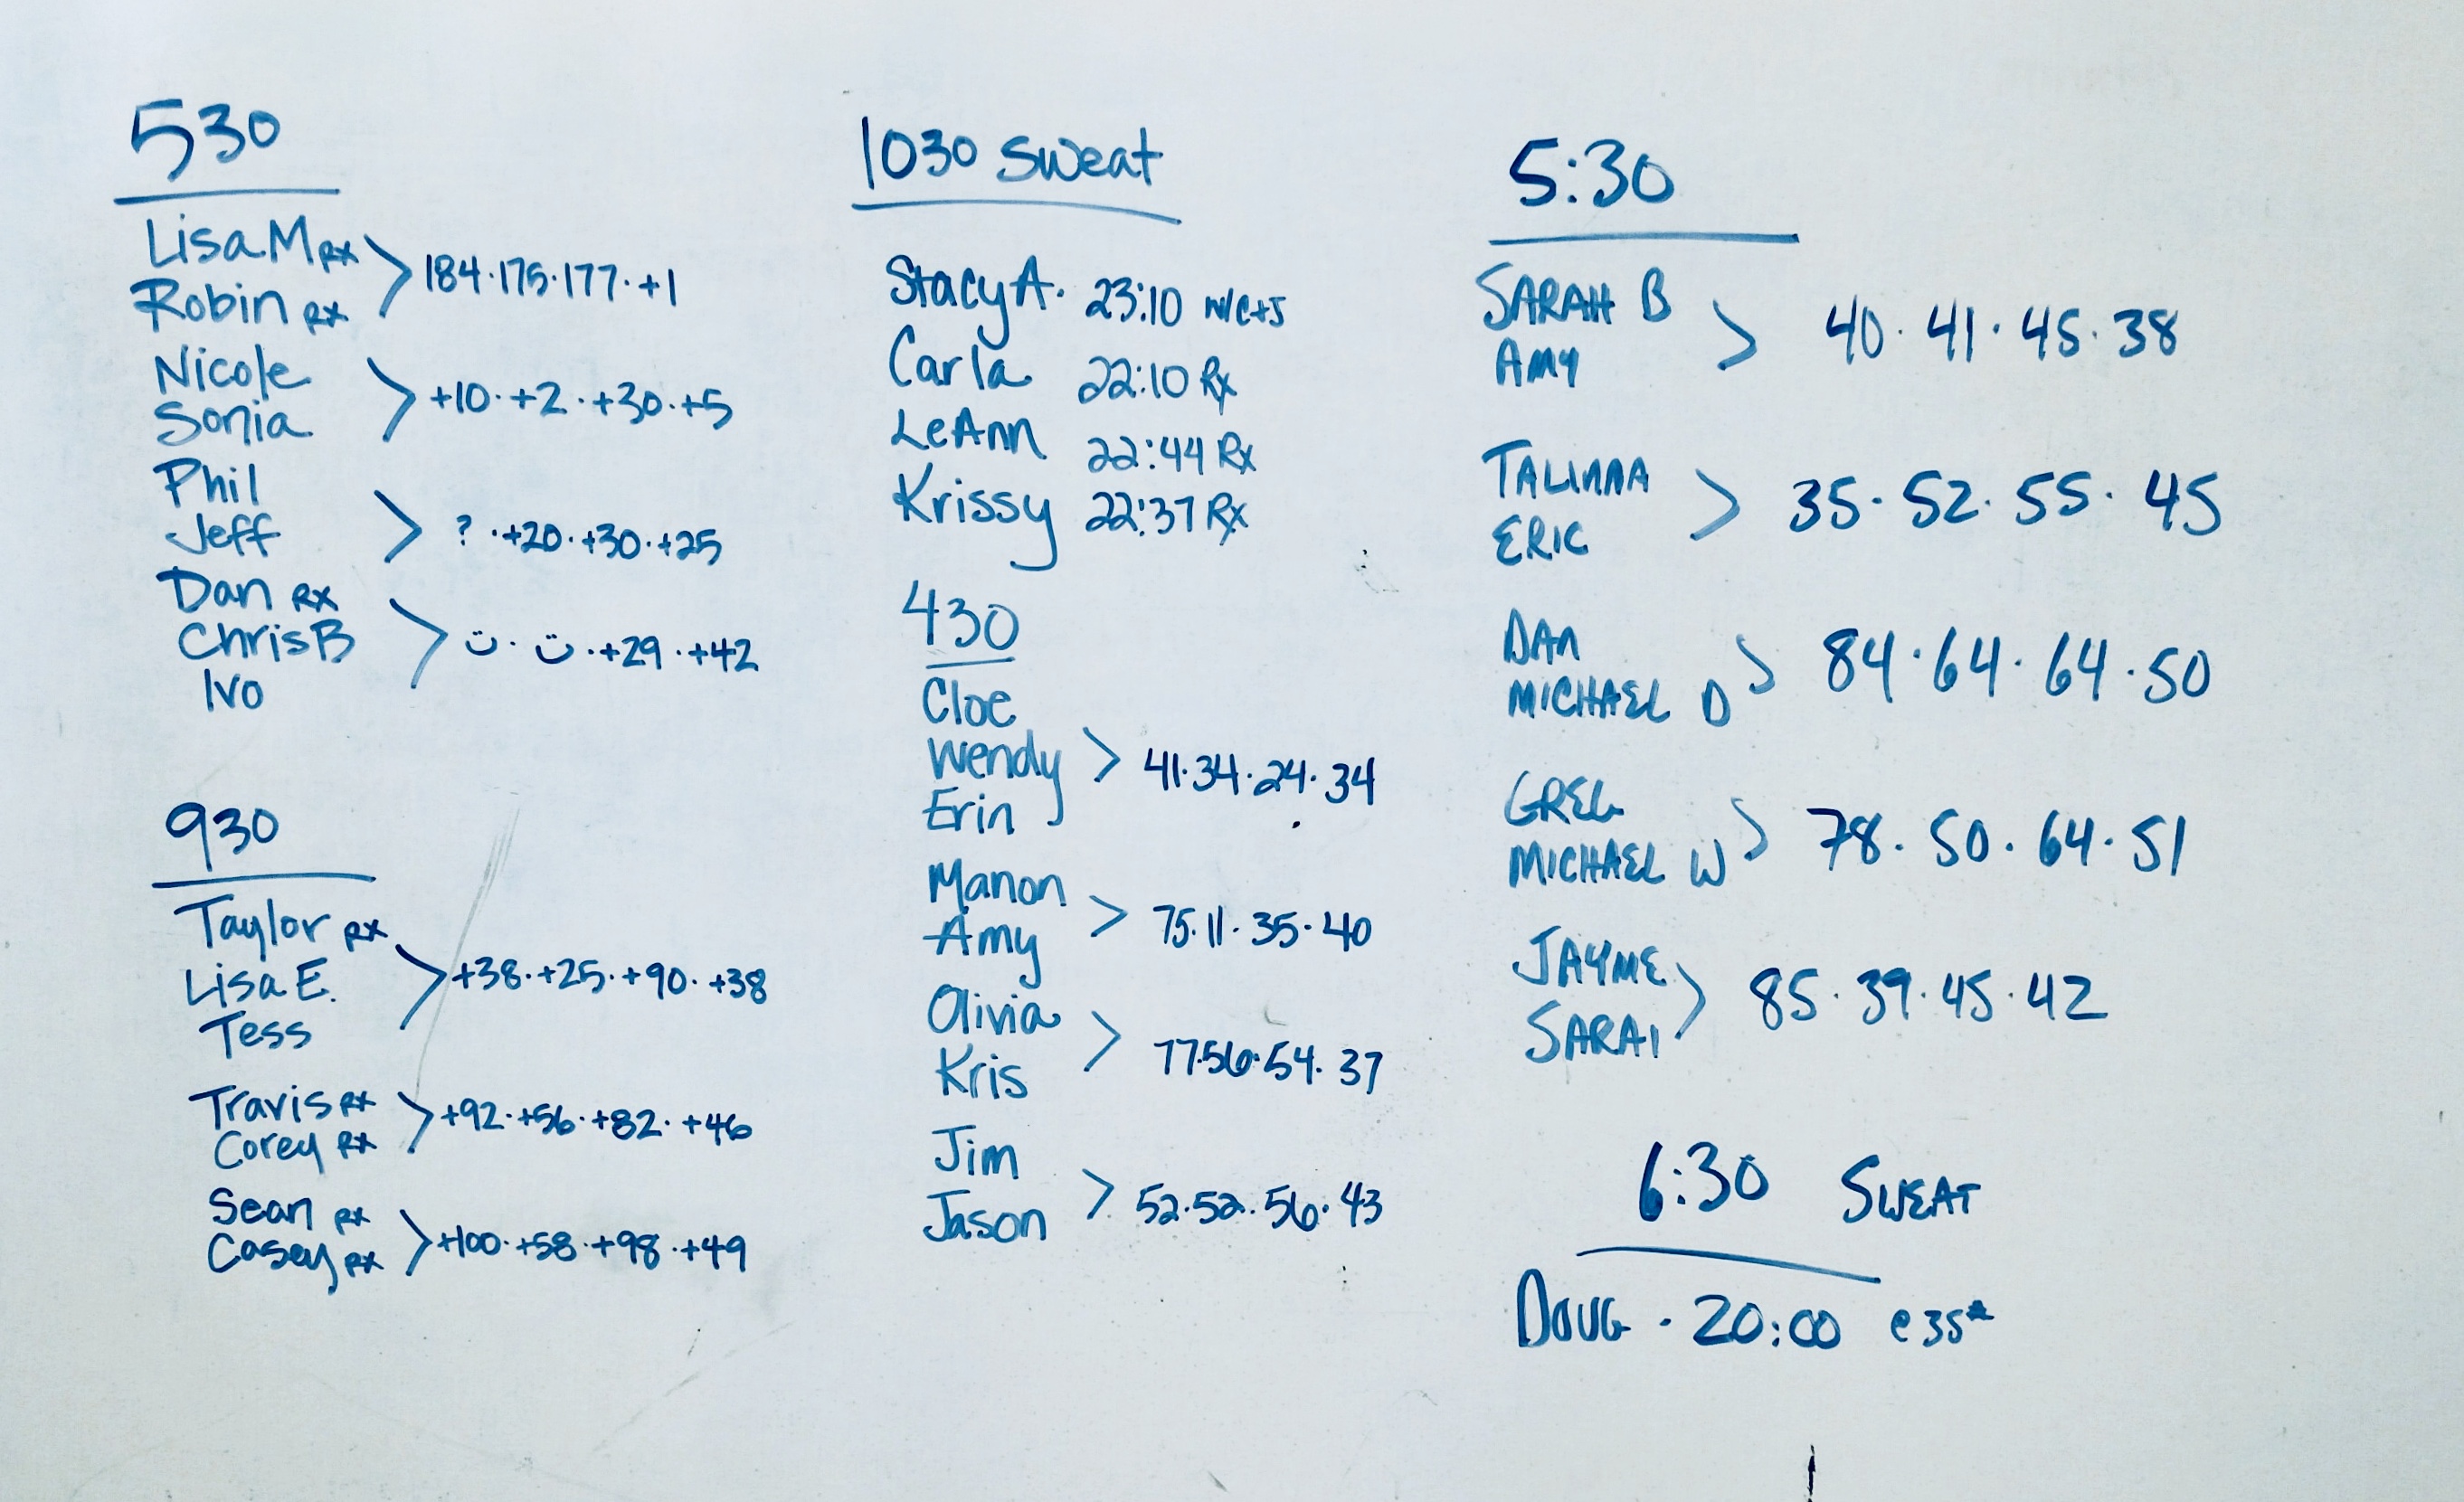 530
Lisa M RX
Robin RX > 184·175·177·+1
Nicole
Sonia > +10·+2·+30·+5
Phil
Jeff > ?·+20·+30·+25
Dan RX
Chris B > ··+29·+42
Ivo
930
Taylor RX
Lisa E. > +38·+25·+90·+38
Tess
Travis RX
Corey RX > +92·+56·+82·+46
Sean RX
Casey RX > +100·+58·+98·+49
1030 Sweat
Stacy A. 23:10
Carla 22:10 Rx
LeAnn 22:44 Rx
Krissy 22:37 Rx
430
Cloe
Wendy > 41·34·24·34
Erin
Manon
Amy > 75·11·35·40
Olivia
Kris > 77·56·54·37
Jim
Jason > 52·52·56·43
5:30
SARAH B
AMY > 40·41·45·38
ERIC > 35·52·55·45
DAN
MICHAEL D > 84·64·64·50
GREG
MICHAEL W > 78·50·64·51
JAYME
SARAI > 85·39·45·42
6:30 SWEAT
DOUG · 20:00 @ 35#